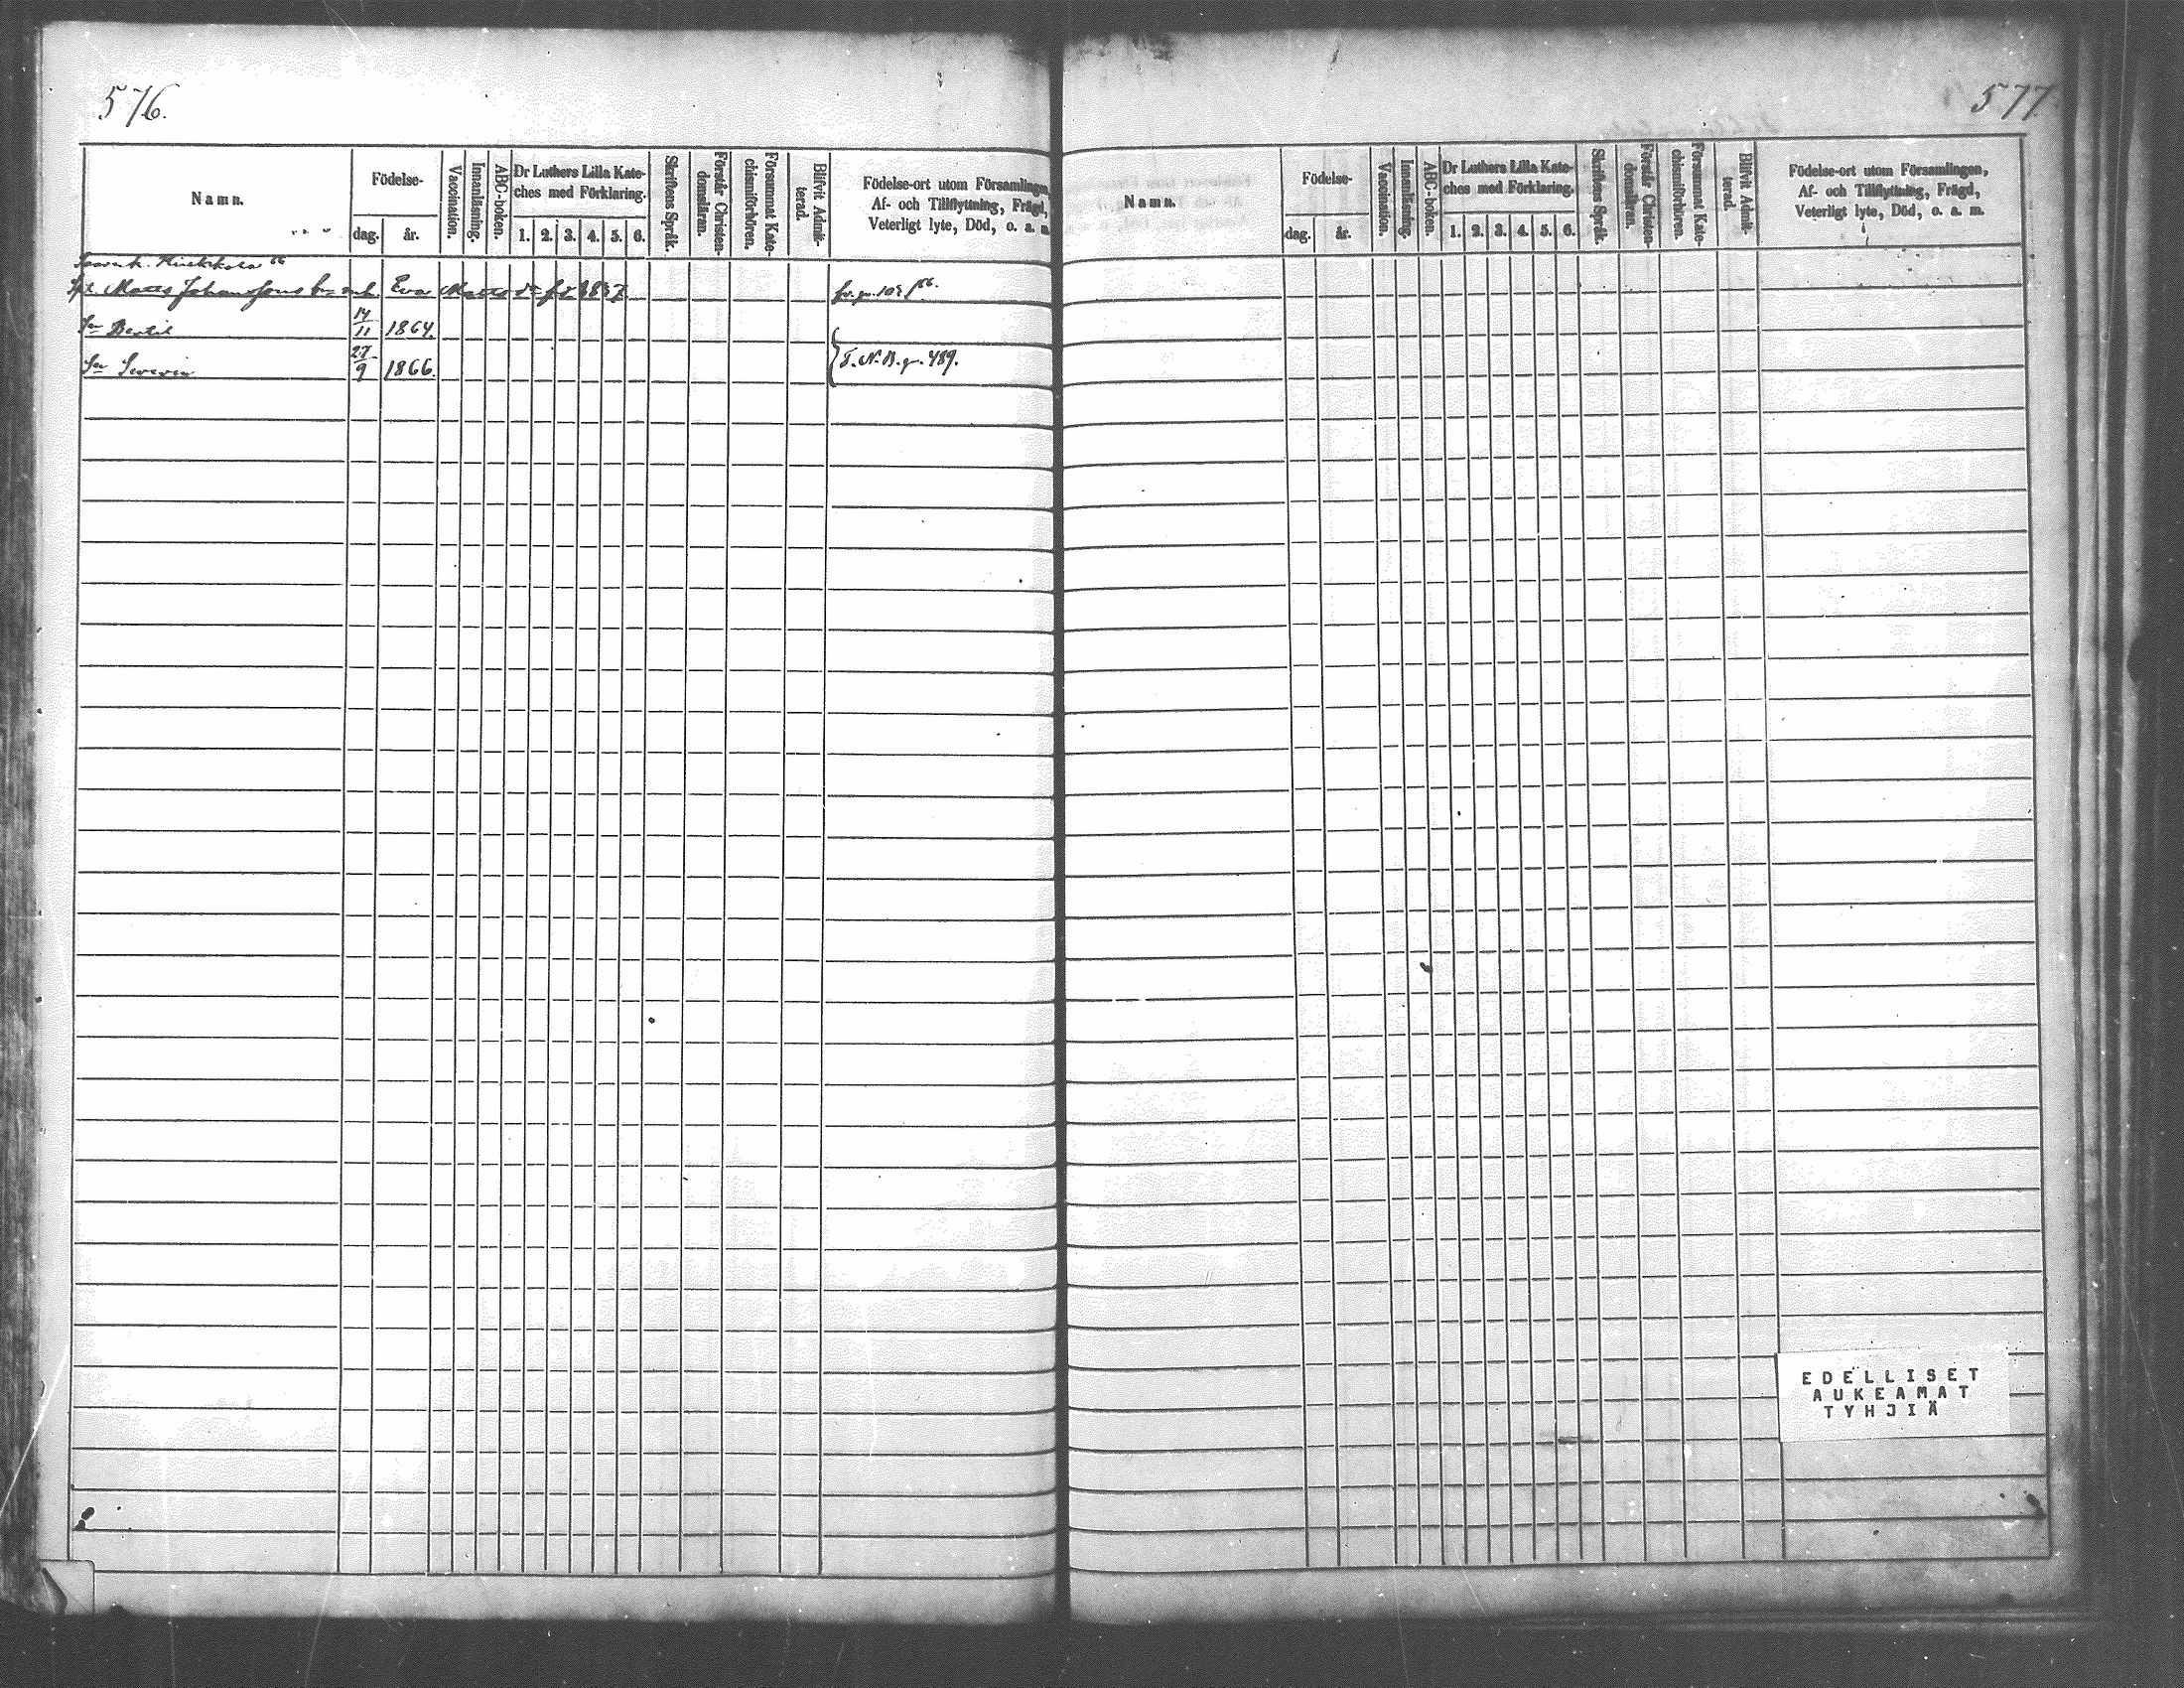 576.
Namn.
Födelse-
dag.
år.
Vaccination.
Innanläsning.
ABC-boken.
Dr Luthers Lilla Kate-
ches med Förklaring.
1. 2. 3. 4. 5. 6.
Skriftens Språk.
Förstår Christen-
domsläran.
Försummat Kate-
chismiförhören.
Blifvit Admit-
terad.
Födelse-ort utom Församlingen,
Af- och Tillflyttning, Frägd,
Veterligt lyte, Död, o. a. m.
Matts Johanssons Eva Matts dr 1837
Sn Bertil 14/11 1864.
Sn Severin 27/9 1866. T. N. B. p. 489.
577.
Namn.
Födelse-
dag.
år.
Vaccination.
Innanläsning.
ABC-boken.
Dr Luthers Lilla Kate-
ches med Förklaring.
1. 2. 3. 4. 5. 6.
Skriftens Språk.
Förstår Christen-
domsläran.
Försummat Kate-
chismiförhören.
Blifvit Admit-
terad.
Födelse-ort utom Församlingen,
Af- och Tillflyttning, Frägd,
Veterligt lyte, Död, o. a. m.
EDELLISET
AUKEAMAT
TYHJIÄ